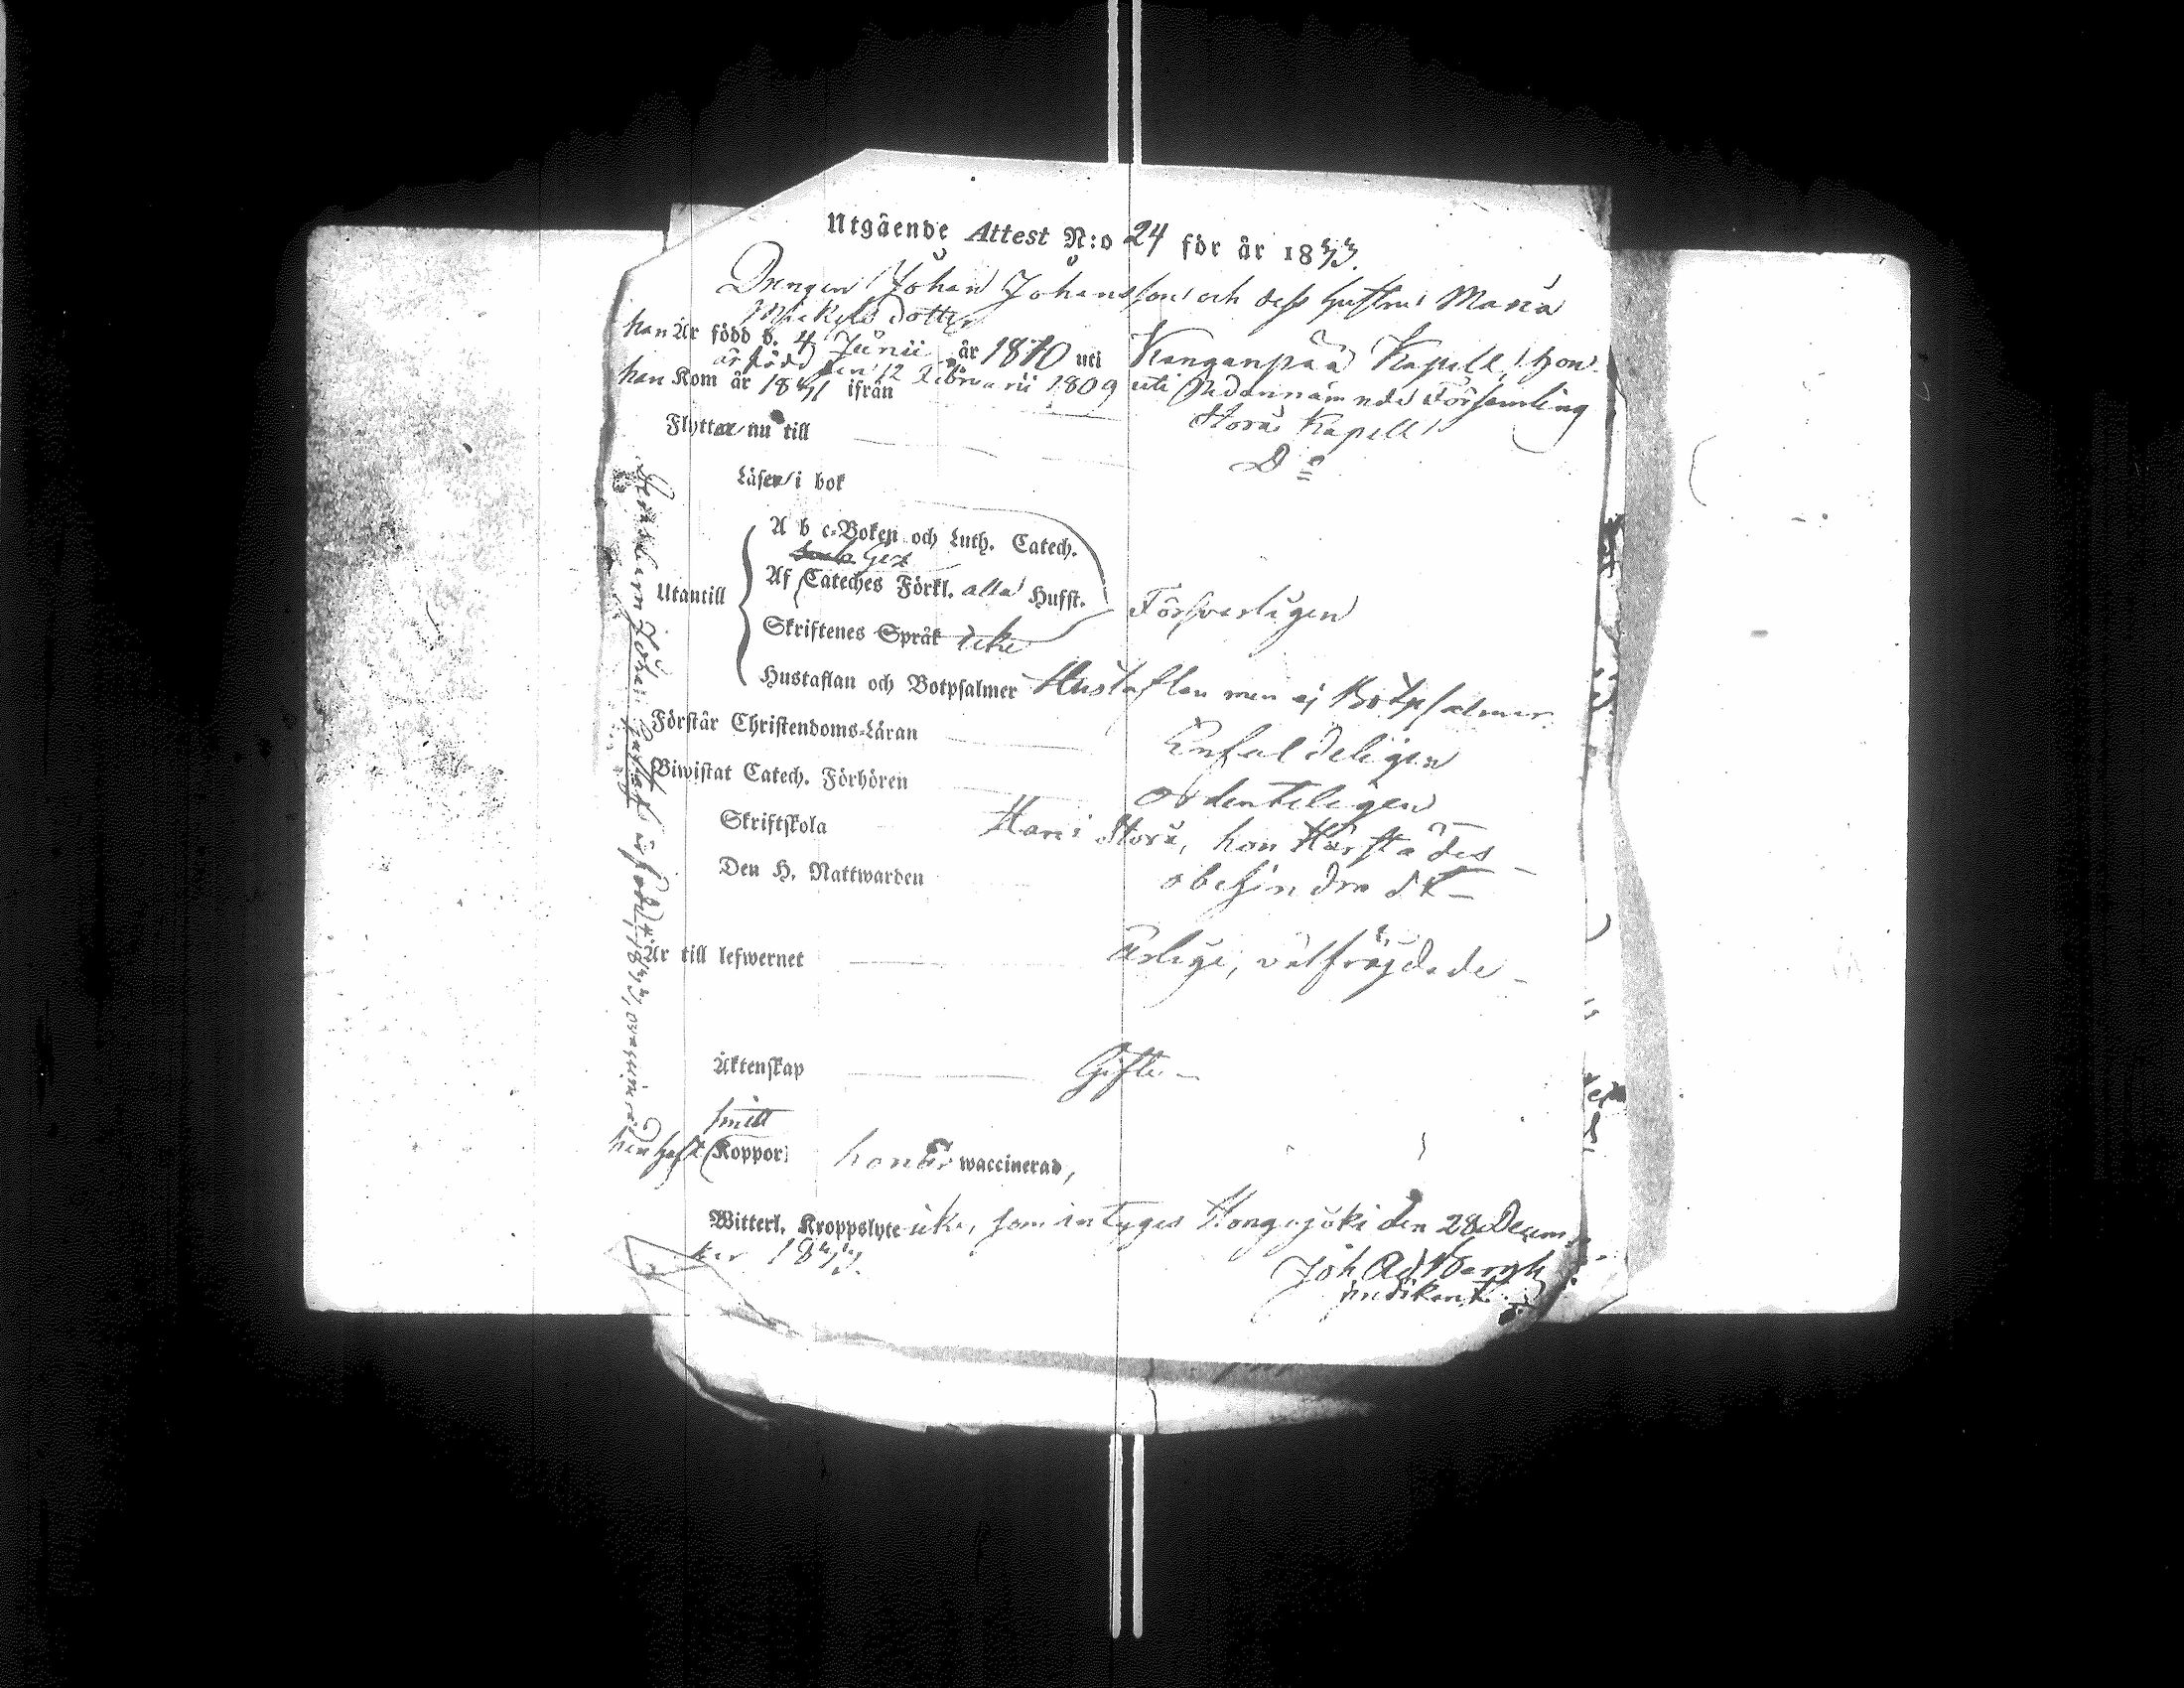 Utgående Attest N:o 24 för år 1833.
Drengen Johan Johansson och dess hustru Maria
Mickels dotter
han Är född d. 4 Junii år 1810 uti Kanganpää Kapell, hon
är född den 12 Februarii 1809 uti nedannämnde Församling
han Kom år 1831 ifrån Storå Kapell
Flyttar nu till Do
Läser i bok
A b c-Boken och Luth. Catech.
Utantill Af Cateches Förkl. alla Husst. Försvarligen
Skriftenes Språk icke
Hustaflan och Botpsalmer Hustaflan men ej Botpsalmer
Förstår Christendoms-Läran Enfaldeligen
Biwistat Catech. Förhören ordenteligen
Skriftskola Han i Storå, hon härstädes
Den H. Nattwarden obehindradt
Är till lefwernet Ärlige, välfräjdade
Äktenskap Gifte
han haft Koppor, hon är waccinerad,
Witterl. Kroppslyte icke, som intygas Hongojoki den 28 Decem-
ber 1833.
Joh Ad Bergh
predikant